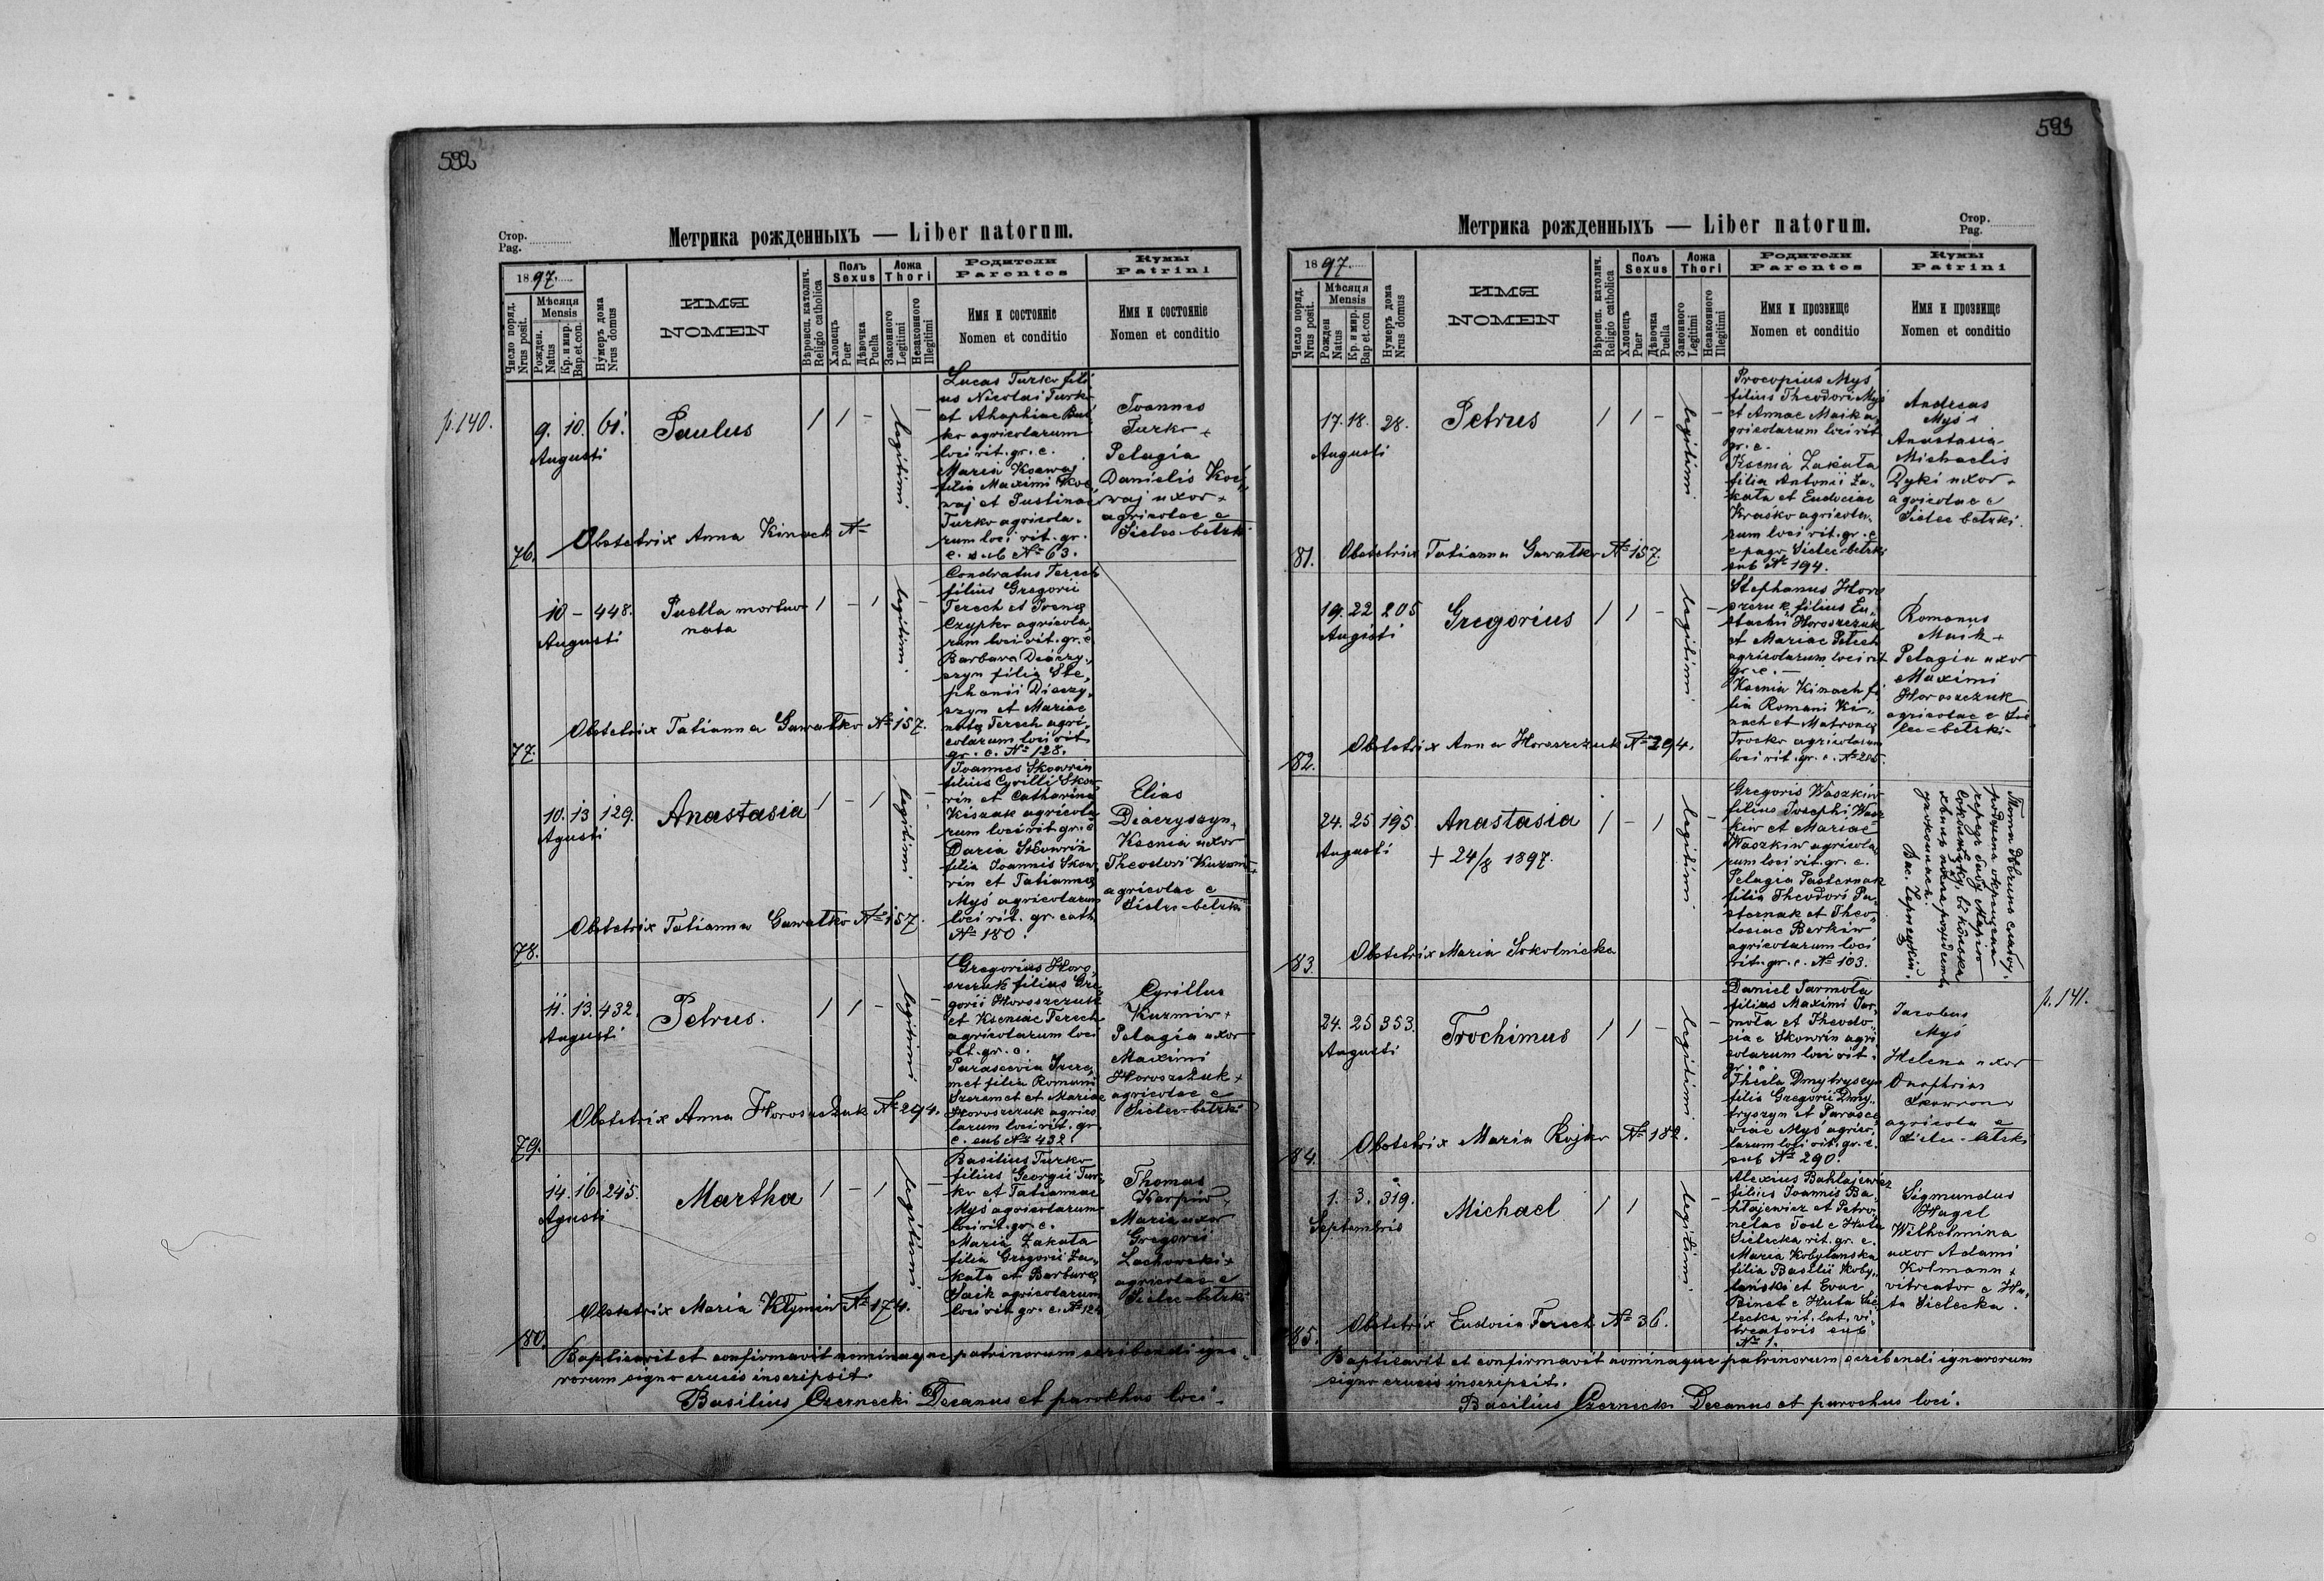 592
Стор.
Pag.
Метрика рожденныхъ — Liber natorum.
1897.
Число поряд.
Nrus posit.
Мѣсяця
Mensis
Рожден.
Natus
Кр. и мир.
Bap.et.con.
Нумеръ дома
Nrus domus
ИМЯ
NOMEN
Вѣроисп. католич.
Religio catholica
Полъ
Sexus
Хлопецъ
Puer
Дѣвочка
Puella
Ложа
Thori
Законного
Legitimi
Незаконного
Illegitimi
Родители
Parentes
Имя и состояніе
Nomen et conditio
Кумы
Patrini
Имя и состояніе
Nomen et conditio
p. 140.
76.
9. 10. 61.
Augusti
Paulus
1 1 -
legitimi
Lucas Turko fili
us Nicolai Turk-
et Ahaphiae But
ko agricolarum
loci rit. gr. c.
Maria Koewaj
filia Maximi Koc,
waj et Justinae
Turko agricola-
rum loci rit. gr.
c. sub № 63.
Joannes
Turko +
Pelagia
Danielis Koć
waj uxor +
agricolae e
Sielec-bełzki
Obstetrix Anna Kinach №
77.
10 - 448.
Augusti
Puella mortuo
nata
1 - 1
legitimi
Condratus Terech
filius Gregorii
Terech et Irenae
Czypko agricola,
rum loci rit. gr. c.
Barbara Diaczy,
szyn filia Ste,
phanii Diaczy,
szyn et Mariae
natae Terech agri,
colarum loci rit.
gr. c. № 128.
Obstetrix Tatianna Gawałko № 157.
78.
10. 13 129.
Agusti
Anastasia
1 - 1
legitimi
Joannes Skowrin
filius Cyrilli Skow
rin et Catharinae
Kiszak agricola
rum loci rit. gr. c
Daria Skowrin
filia Joannis Skow,
rin et Tatiannae
Myś agricolarum
loci rit. gr. cath.
№ 180.
Elias
Diaczyszyn,
Ksenia uxor
Theodori Kuzmi +
agricolae e
Sielec-bełzki
Obstetrix Tatianna Gawałko № 157.
79.
11. 13. 432.
Augusti
Petrus.
1 1 -
legitimi
Gregorius Horo,
szczuk filius Gre
gorii Horoszczuk
et Kseniae Terech
agricolarum loci
rit. gr. c.
Parascevia Szere,
met filia Romani
Szeremet et Mariae
Horoszczuk agrico
larum loci rit. gr
c. sub № 432
Cyrillus
Kuzmiw +
Pelagia uxor
Maximi
Horoszczuk +
agricolae e
Sielec-bełzki
Obstetrix Anna Horoszczuk № 294.
80.
14. 16. 245.
Agusti
Martha
1 - 1
legitimi
Basilius Turko
filius Georgii Tur,
ko et Tatiannae
Myś agricolarum
loci rit. gr. c.
Maria Zakała
filia Gregorii Za,
kała et Barbarae
Jaik agricolarum
loci rit. gr. c. № 124
Thomas
Karpiw +
Maria uxor
Gregorii
Lachowski +
agricolae e
Sielec-bełzki
Obstetrix Maria Kłymiw № 174.
Baptisavit et confirmavit nominaque patrinorum scribendi igna-
rorum signo crucis inscripsit.
Basilius Czernecki Decanus et parokhus loci.
593
Стор.
Pag.
Метрика рожденныхъ — Liber natorum.
1897.
Число поряд.
Nrus posit.
Мѣсяця
Mensis
Рожден
Natus
Кр. и мир.
Bap et.con
Нумеръ дома
Nrus domus
ИМЯ
NOMEN
Вѣроисп. католич.
Religio catholica
Полъ
Sexus
Хлопецъ
Puer
Дѣвочка
Puella
Ложа
Thori
Законного
Legitimi
Незаконного
Illegitimi
Родители
Parentes
Имя и прозвище
Nomen et conditio
Кумы
Patrini
Имя и прозвище
Nomen et conditio
81.
17. 18. 28.
Augusti
Petrus
1 1 -
legitimi
Procopius Myś
filius Theodori Myś
et Annae Maik a,
gricolarum loci rit
gr. c.
Ksenia Zakała
filia Antonii Za,
kała et Eudociae
Kraśko agricola,
rum loci rit. gr. c
e pago Sielec-bełzki
sub № 194.
Andreas
Myś +
Anastasia
Michaelis
Dyki uxor +
agricolae e
Sielec bełzki.
Obstetrix Tatianna Gawałko № 157
82.
19. 22 205
Augusti
Gregorius
1 1 -
legitimi
Stephanus Horo
szczuk filius Eu,
stachii Horoszczuk
et Mariae Petech
agricolarum loci rit
gr. c. —
Ksenia Kinach fi
lia Romani Ki,
nach et Matronae
Trocko agricolarum
loci rit. gr. c. № 205.
Romanus
Maik +
Pelagia uxor
Maximi
Horoszczuk
agricolae e Sie
lec-bełzki-
Obstetrix Anna Horoszczuk № 294.
83.
24. 25 195.
Augusti
Anastasia
+ 24/8 1897.
1 - 1
legitimi
Gregoris Waszkiw
filius Josephi Wasz
kiw et Mariae
Waszkiw agricola
rum loci rit. gr. c.
Pelagia Pasternak
filia Theodori Pa,
sternak et Theo,
dosiae Berkiw
agricolarum loci
rit. gr. c. № 103.
рождена окрещена
черезъ бабу Марію
Вас. Чернецкій.
Obstetrix Maria Sokolnicka
p. 141.
84.
24. 25 353.
Augusti
Trochimus
1 1 -
legitimi
Daniel Jarmola
filius Maximi Jar,
mola et Theodo,
siae Skowrin agri
colarum loci rit.
gr. c.
Thecla Dmytryszyn
filia Gregorii Dmy,
tryszyn et Parasce
viae Myś agrico,
larum loci rit. gr. c.
sub № 290.
Jacobus
Myś
Helena uxor
Onuphrius
Skowron
agricola e
Sielec-bełzki
Obstetrix Maria Kojko № 182.
85.
1. 3. 319.
Septembris
Michael
1 1
legitimi
Alexius Bahłajewicz
filius Joannis Ba,
hłajewicz et Petro,
nelae Tod e Huta
Sielecka rit. gr. c.
Maria Kobylanska
filia Basilii Koby,
lański et Evae
Binet e Huta Sie,
lecka rit. lat. vi,
treatoris sub
№ 1.
Sigmundus
Hagel
Wilhelmina
uxor Adami
Kolmann +
vitreator e Hu,
ta Sielecka.
Obstetrix Eudocia Terech № 36.
Baptisavit et confirmavit nominaque patrinorum scribendi ignarorum
signo crucis inscripsit.
Basilius Czernecki Decanus et parochus loci.